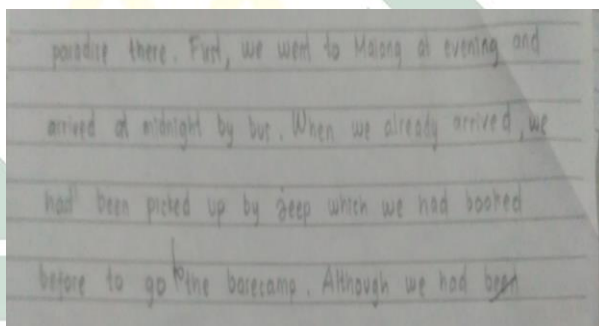 paradise there. First, we went to Malang at evening and
arrived at midnight by bus. When we already arrived, we
had been picked up by jeep which we had booked
before to go to the basecamp. Although we had been